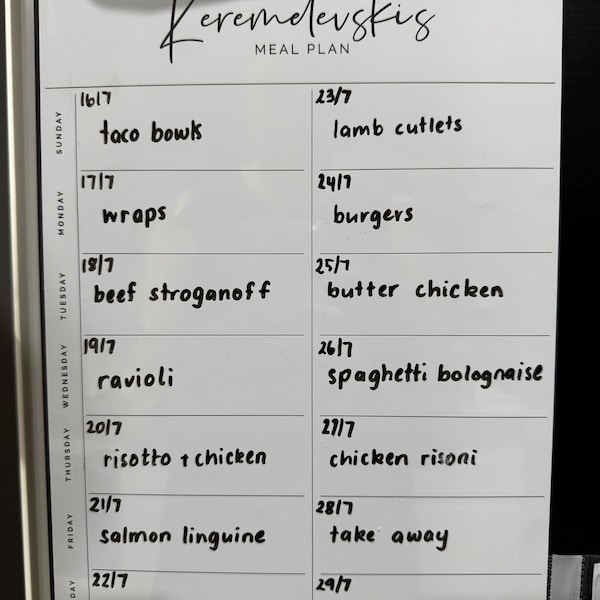 Keremelevskis
MEAL PLAN
SUNDAY
16/7
taco bowls
23/7
lamb cutlets
MONDAY
17/7
wraps
24/7
burgers
TUESDAY
18/7
beef stroganoff
25/7
butter chicken
WEDNESDAY
19/7
ravioli
26/7
spaghetti bolognaise
THURSDAY
20/7
risotto + chicken
27/7
chicken risoni
FRIDAY
21/7
salmon linguine
28/7
take away
DAY
22/7
29/7